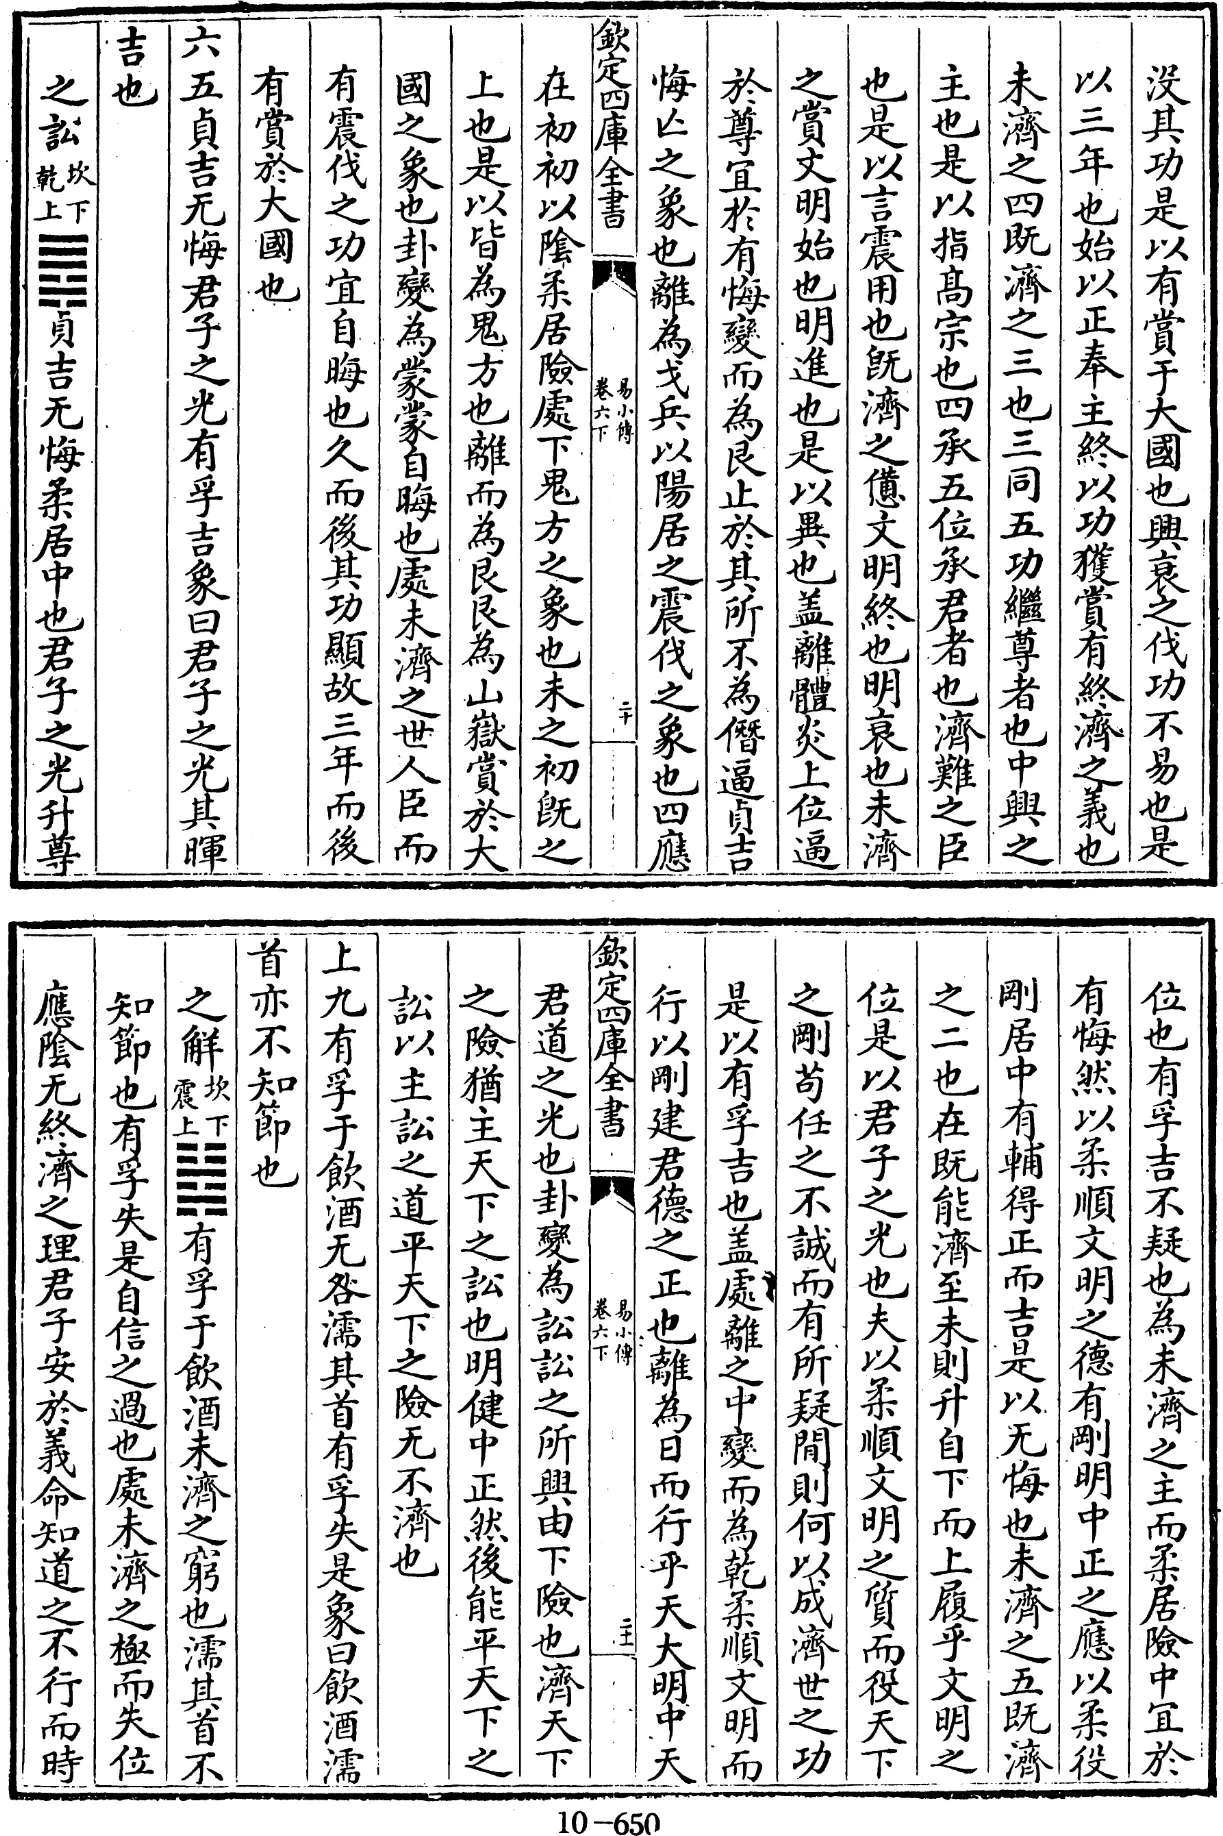 没其功是以有賞于大國也興衰之伐功不易也是
以三年也始以正奉主終以功獲賞有終濟之義也
未濟之四既濟之三也三同五功繼尊者也中興之
主也是以指髙宗也四承五位承君者也濟難之臣
也是以言震用也既濟之僃文明終也明衰也未濟
之賞文明始也明進也是以異也盖離體炎上位逼
於尊宜於有悔變而為艮止於其所不為僭逼貞吉
悔亡之象也離為戈兵以陽居之震伐之象也四應
欽定四庫全書
易小傳
卷六下
二十
在初初以隂柔居險處下鬼方之象也未之初既之
上也是以皆為鬼方也離而為艮艮為山嶽賞於大
國之象也卦變為蒙蒙自晦也處未濟之世人臣而
有震伐之功宜自晦也久而後其功顯故三年而後
有賞於大國也
六五貞吉无悔君子之光有孚吉象曰君子之光其暉
吉也
之訟坎下乾上䷅貞吉无悔柔居中也君子之光升尊
位也有孚吉不疑也為未濟之主而柔居險中宜於
有悔然以柔順文明之德有剛明中正之應以柔役
剛居中有輔得正而吉是以无悔也未濟之五既濟
之二也在既能濟至未則升自下而上履乎文明之
位是以君子之光也夫以柔順文明之質而役天下
之剛苟任之不誠而有所疑間則何以成濟世之功
是以有孚吉也盖處離之中變而為乾柔順文明而
行以剛建君德之正也離為日而行乎天大明中天
欽定四庫全書
易小傳
卷六下
二十一
君道之光也卦變為訟訟之所興由下險也濟天下
之險猶主天下之訟也明健中正然後能平天下之
訟以主訟之道平天下之險无不濟也
上九有孚于飲酒无咎濡其首有孚失是象曰飲酒濡
首亦不知節也
之解坎下震上䷧有孚于飲酒未濟之窮也濡其首不
知節也有孚失是自信之過也處未濟之極而失位
應隂无終濟之理君子安於義命知道之不行而時
10-650